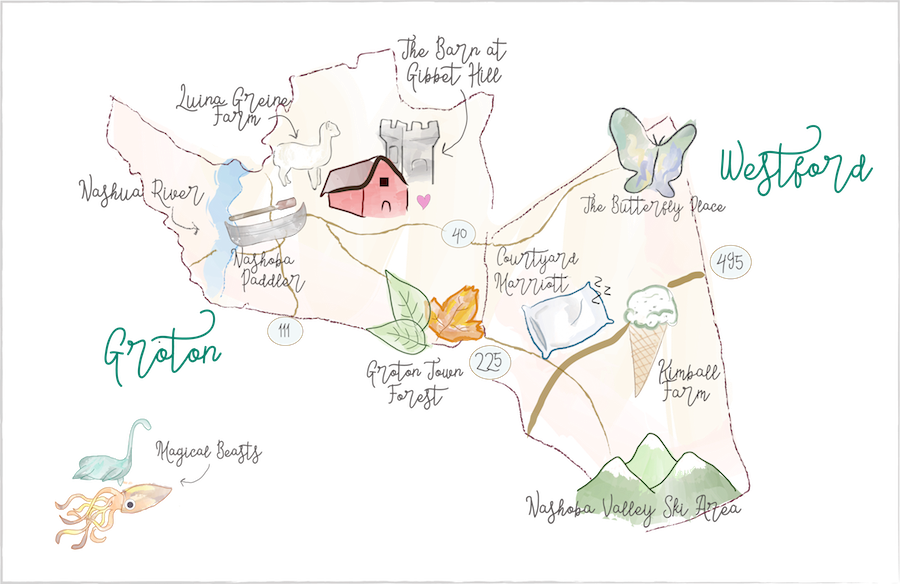 The Barn at
Gibbet Hill
Luina Greine
Farm
Westford
Nashua River
The Butterfly Place
40
Courtyard
Marriott
495
Nashoba
Paddler
111
Groton
225
Groton Town
Forest
Kimball
Farm
Magical Beasts
Nashoba Valley Ski Area
zz